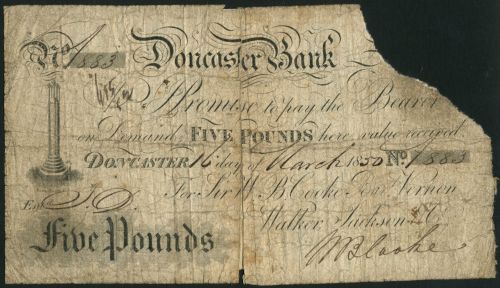 No. 1883 Doncaster Bank
I Promise to pay the Bearer
on Demand FIVE POUNDS here value received
DONCASTER 16 day of March 1830 No. 1883
For Sir W. B. Cooke, Vernon
Walker, Jackson & Co
Ent.
Five Pounds
W B Cooke